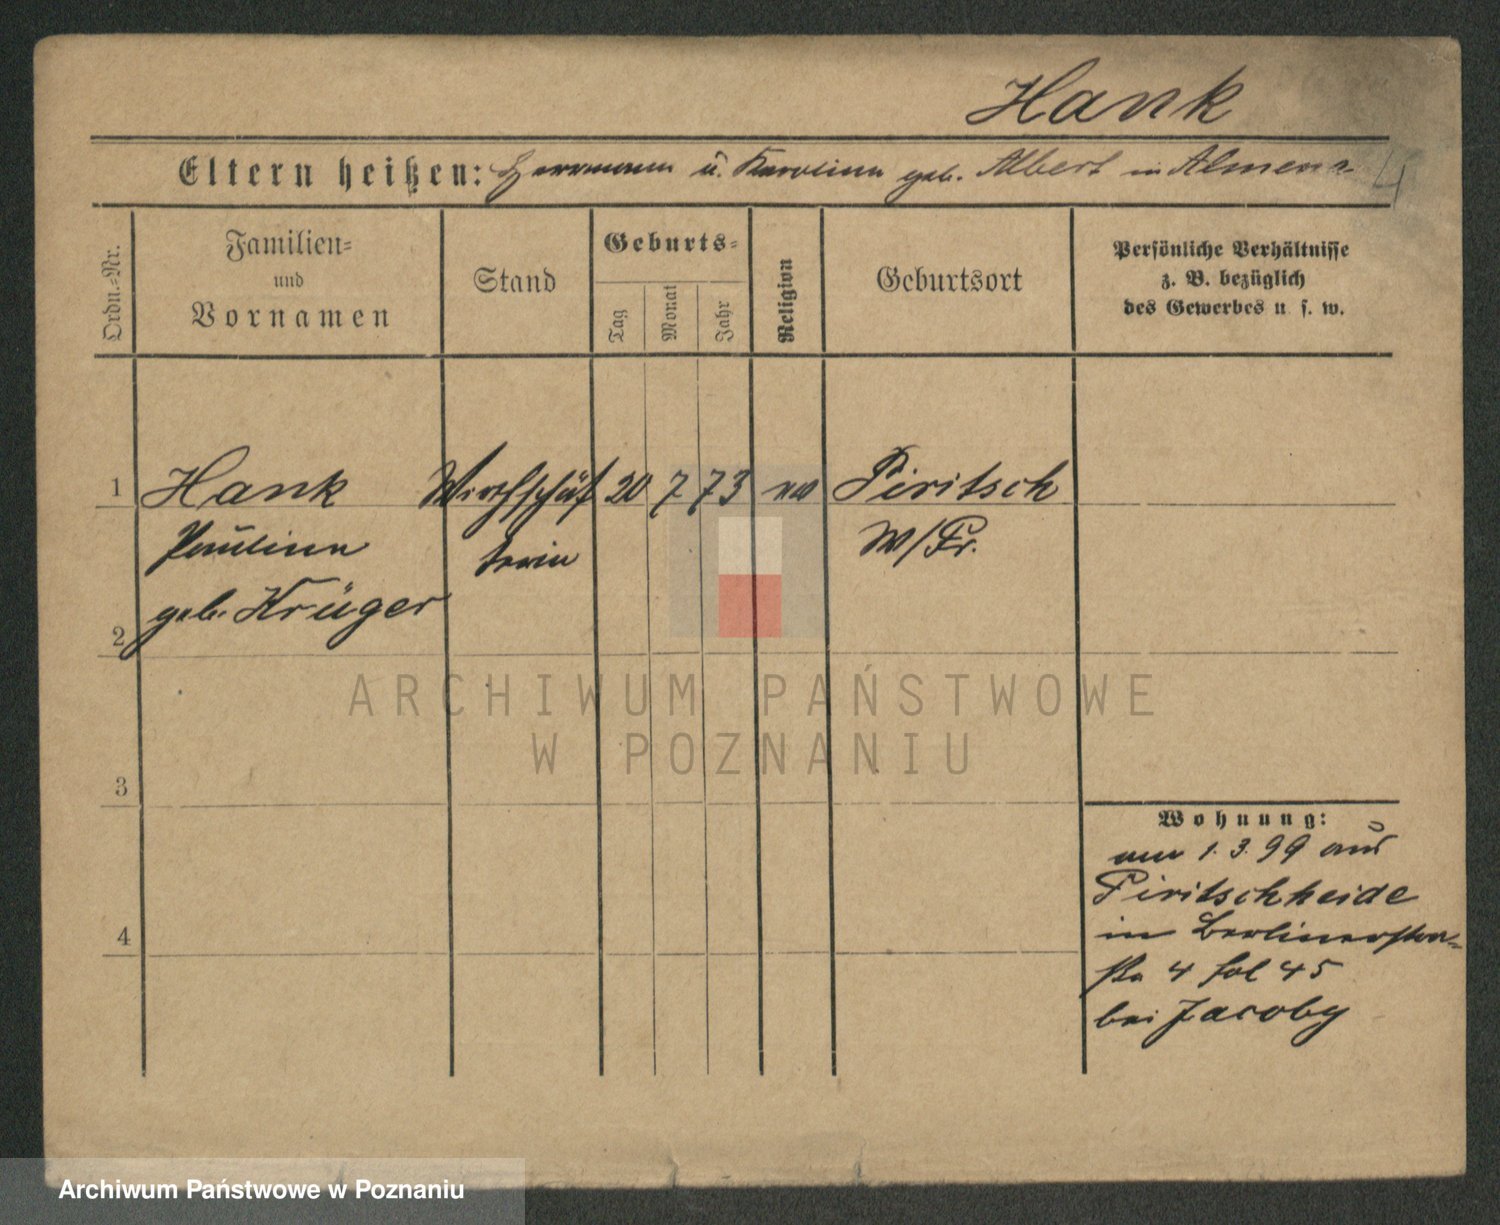 Hank
Eltern heißen: Herrmann u. Karoline geb. Albert in
4
Ordn.-Nr.
Familien-
und
Vornamen
Stand
Geburts-
Tag
Monat
Jahr
Religion
Geburtsort
Persönliche Verhältnisse
z. B. bezüglich
des Gewerbes u. s. w.
1 Hank Wirthschaf 20 7 73 ev Piritsch
Pauline terin W/Pr.
geb. Krüger
2
3
4
Wohnung:
am 1. 3. 99 aus
Piritschheide
in Berlinerstra-
ße 4 fol 45
bei Jacoby
ARCHIWUM PAŃSTWOWE
W POZNANIU
Archiwum Państwowe w Poznaniu